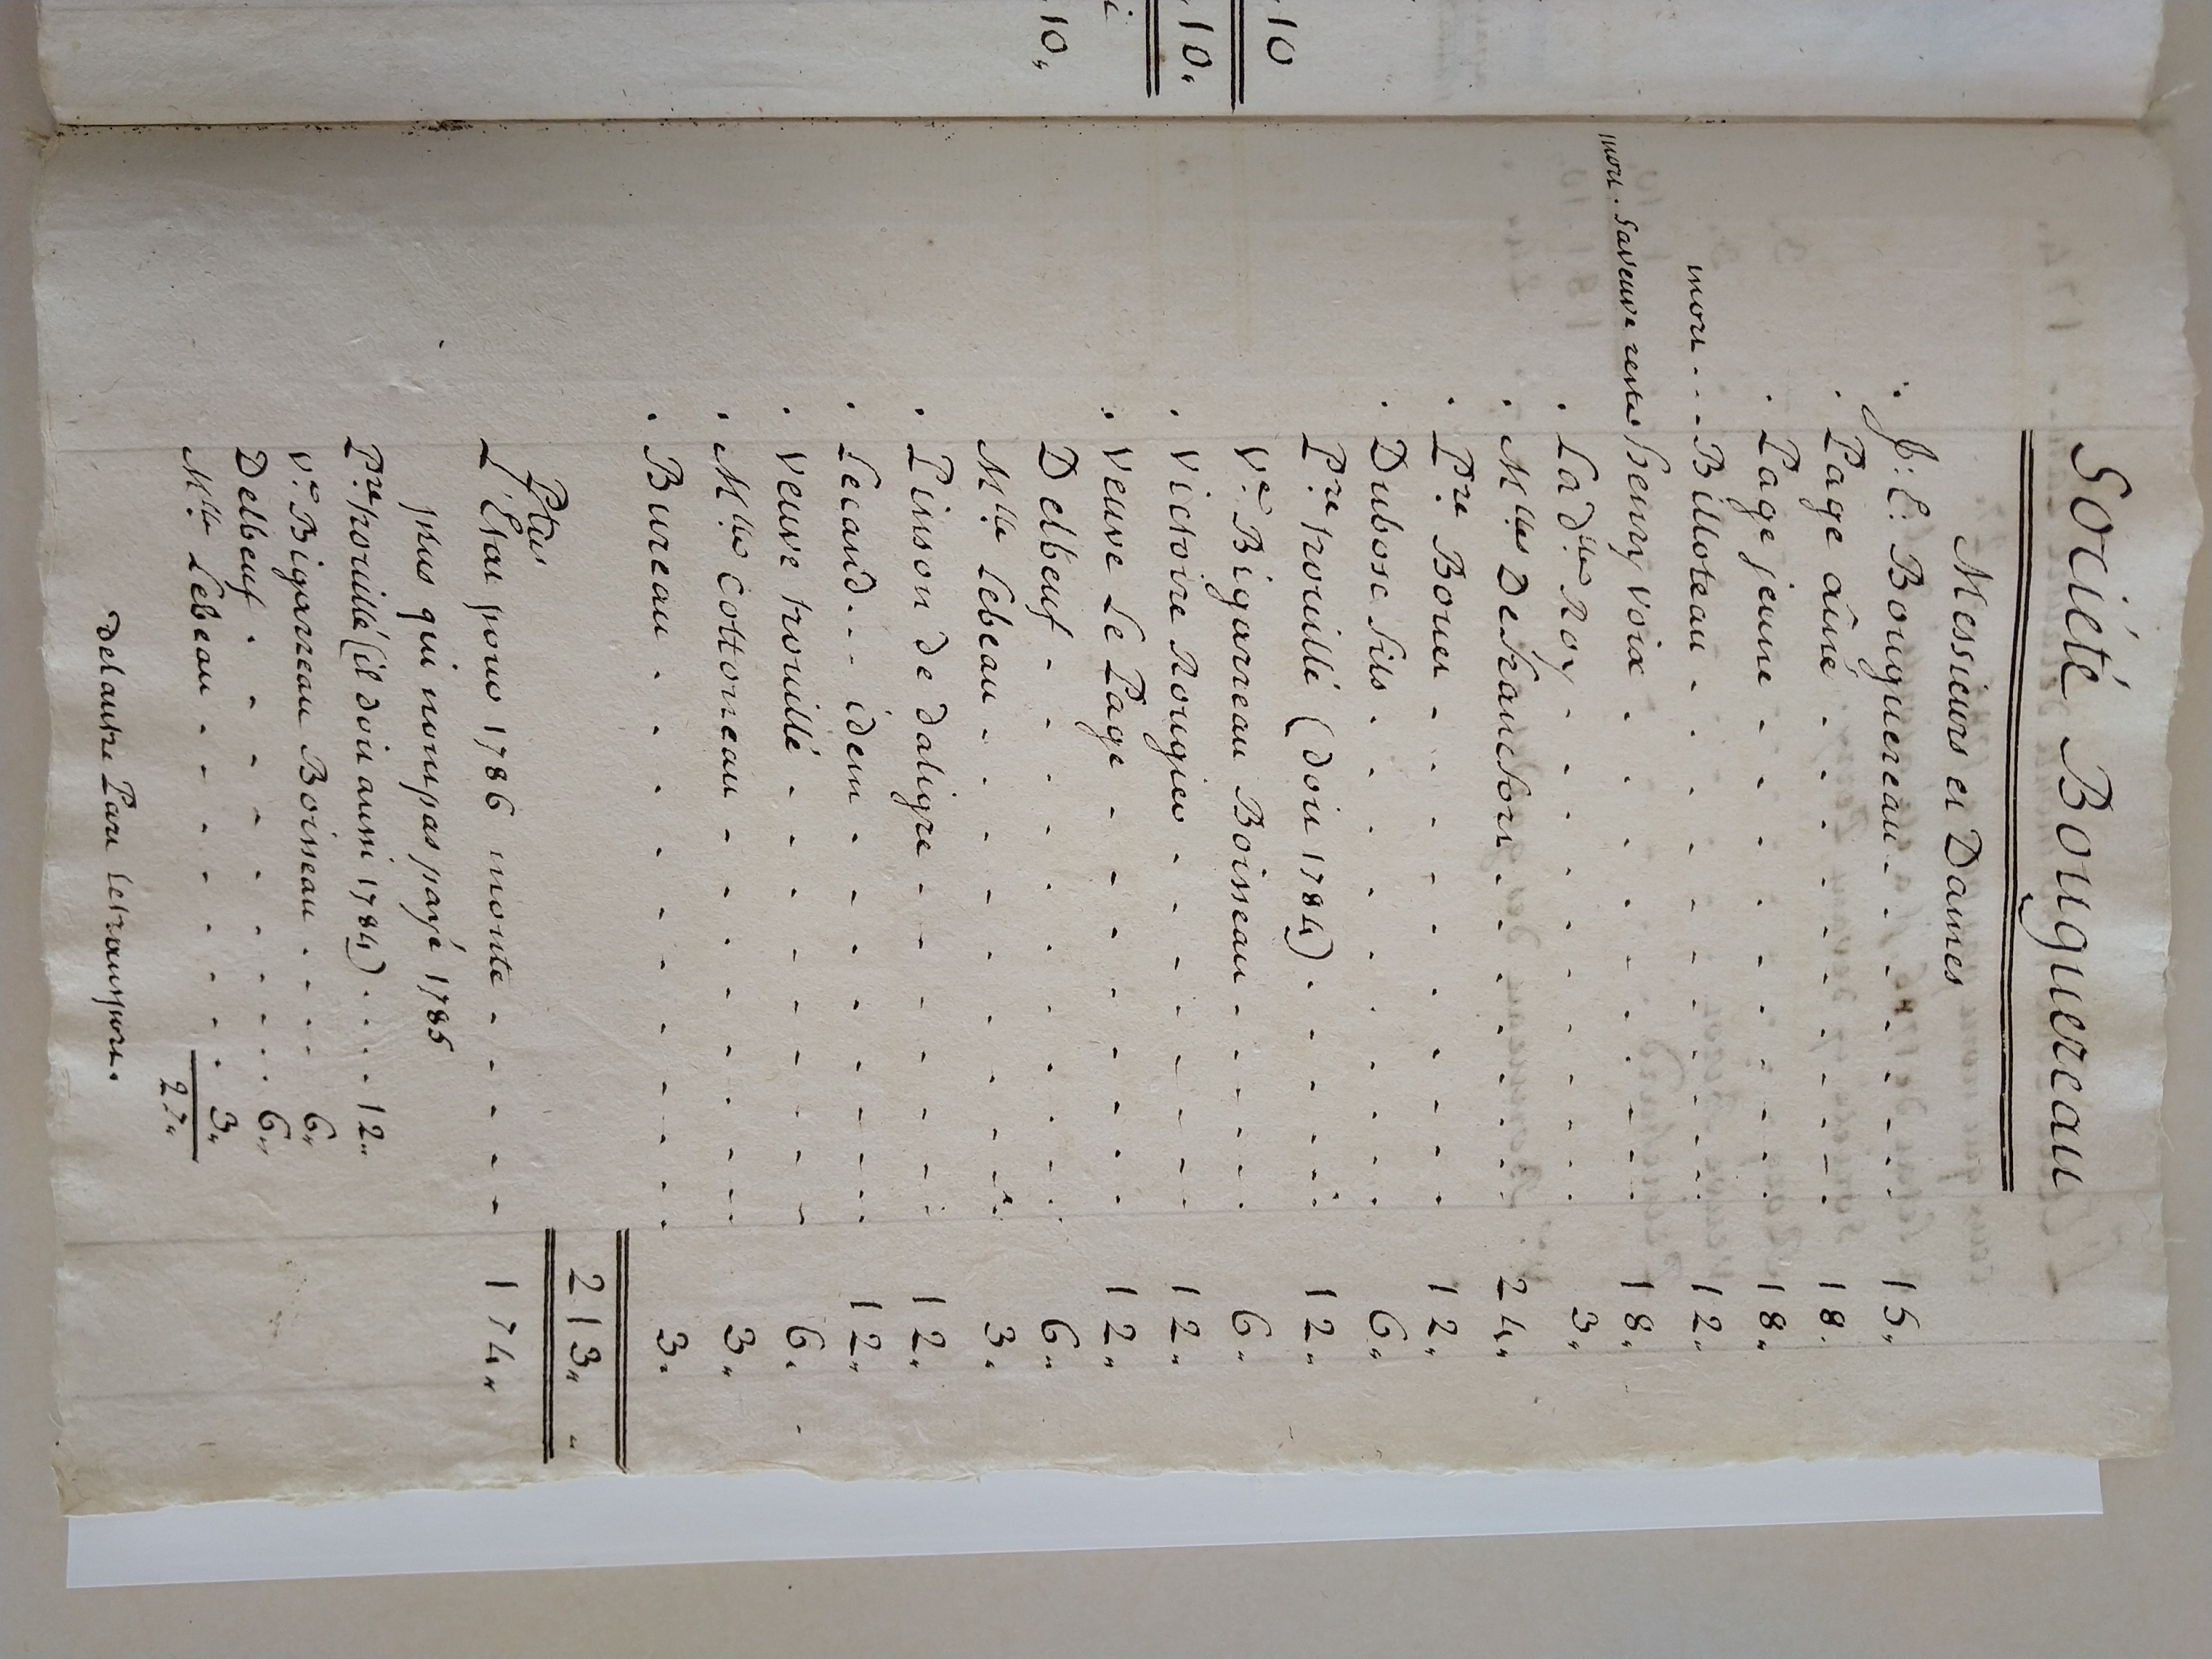 Société Bouguereau
Messieurs et Dames
J: E: Bouguereau - - - - - - 15 "
Page aîné - - - - - - 18.
Page jeune - - - - - - 18 "
mort - - - Billoteau - - - - - - 12 "
mort. Saveuve reste Henry Voix - - - - - - 18 "
La d.lle Roy - - - - - - 3 "
M.lles Defrancfort - - - - - - 24 "
P.re Bouer - - - - - - 12 "
Dubosc fils - - - - - - 6 "
P.re trouillé (doit 1784) - - - - - 12 "
V.e Bigarreau Boisseau - - - - - 6 "
Victoire Rougier - - - - - - 12 "
Veuve Le Page - - - - - - 12 "
Delbeuf - - - - - - 6 "
M.lle Lebeau - - - - - - 3 "
Pinson de daligre - - - - - - 12 "
Lecand - - idem - - - - - - 12 "
Veuve trouillé - - - - - - 6 "
M.lle Cottorreau - - - - - - 3 "
Bureau - - - - - - 3 "
213 " "
L'Etat pour 1786 monte - - - - - 174 "
plus qui nont pas payé 1785
P.re trouillé (il doit aussi 1784) . . . . 12 "
V.e Bigarreau Boisseau - - - - 6 "
Delbeuf - - - - - - 6 "
M.lle Lebeau - - - - - - 3 "
27 "
De l'autre Part le transport.
10
10 "
10 "